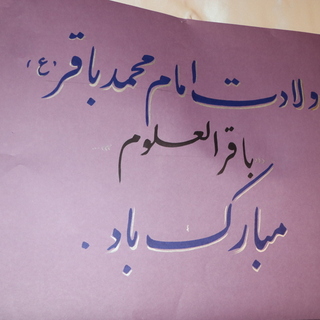 ولادت امام محمد باقر (ع)
باقرالعلوم
مبارک باد.